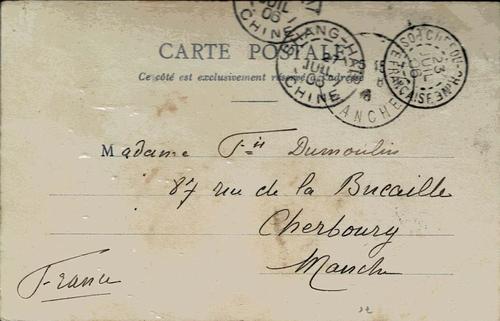 JUIL
06
CHINE
SHANG-HAI
27
JUIL
06
CHINE
MANCHE
23
JUIL
06
CARTE POSTALE
Ce côté est exclusivement réservé à l'adresse
Madame Fis Dumoulin
87 rue de la Bucaille
Cherbourg
Manche
France